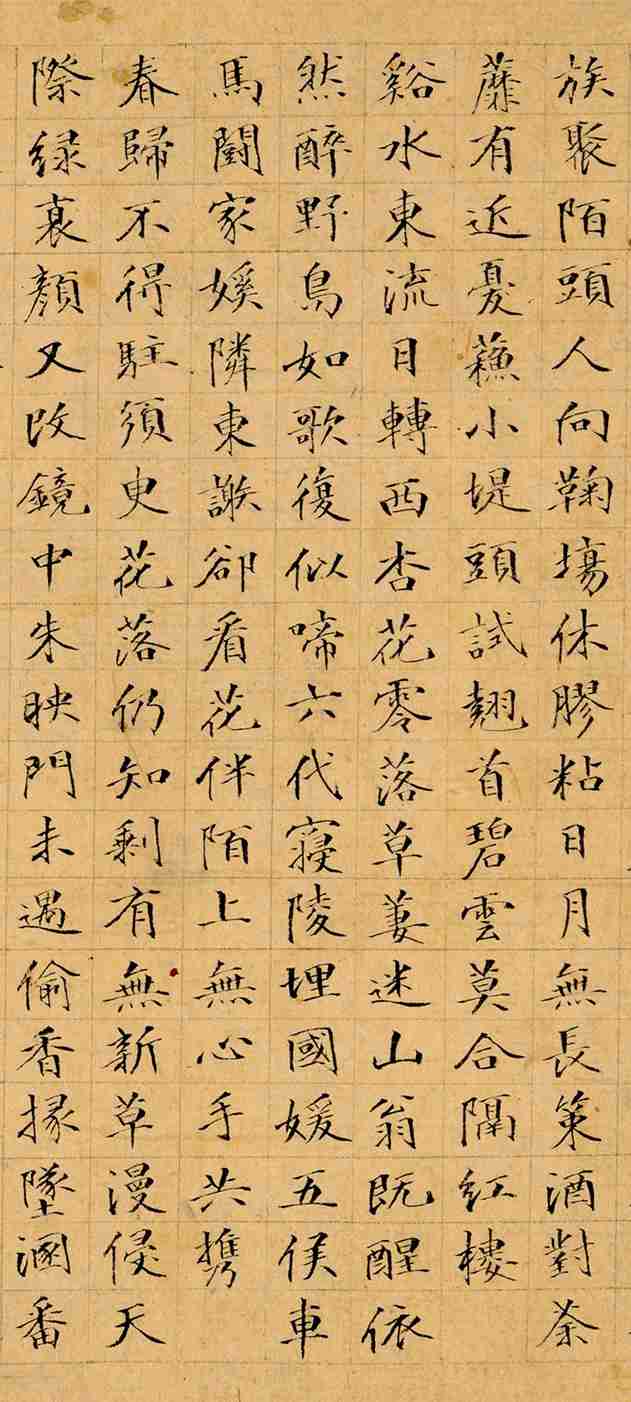 族聚陌頭人向鞠塲休膠粘日月無長策酒對荼
蘼有近憂蘓小堤頭試翹首碧雲莫合隔紅樓
谿水東流日轉西杏花零落草萋迷山翁既醒依
然醉野鳥如歌復似啼六代寢陵埋國媛五侯車
馬鬭家㜎隣東謝卻看花伴陌上無心手共携
春歸不得駐須臾花落仍知剩有無新草漫侵天
際緑衰顏又改鏡中朱映門未遇偷香掾墜溷番